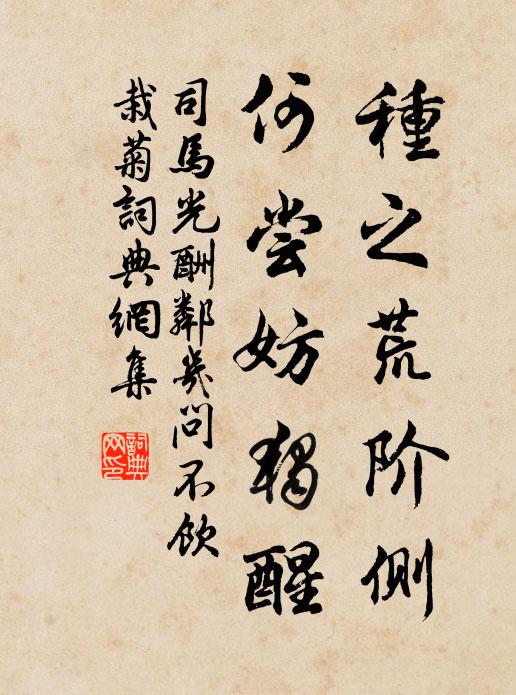 種之荒阶侧
何尝妨獨醒
司馬光酬鄰幾問不飲
栽菊詞典網集
詞典
网印